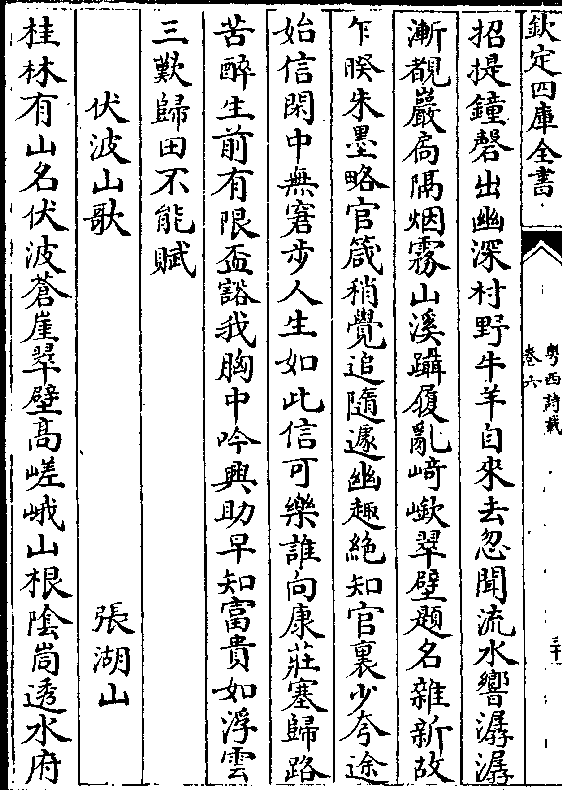 欽定四庫全書
粵西詩載
卷六
二十
招提鐘磬出幽深村野牛羊自來去忽聞流水響潺潺
漸覩巖扃隔烟霧山溪躡履亂崎嶔翠壁題名雜新故
乍暌朱墨略官箴稍覺追隨遽幽趣絶知官裏少夸途
始信閑中無窘步人生如此信可樂誰向康莊塞歸路
苦醉生前有限盃豁我胸中吟興助早知富貴如浮雲
三歎歸田不能賦
伏波山歌
張湖山
桂林有山名伏波蒼崖翠壁髙嵯峨山根陰崗透水府